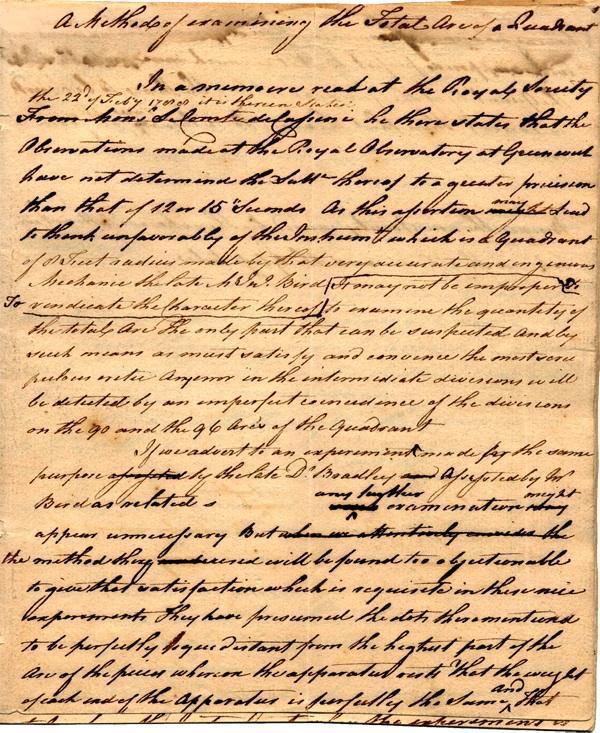 A Method of examining the Total Arc of a Quadrant
In a memoire read at the Royal Society
the 22d of Feby 1788 it is therein States
From Mons Le Comte de Cassini he there states that the
Observations made at the Royal Observatory at Greenwich
have not determind the Latt thereof to a greater precision
than that of 12 or 15 "Seconds As this assertion may Lead
to think unfavorably of the Instrumt which is a Quadrant
of 8 Feet radius made by that very accurate and ingenious
Mechanic the late Mr Jno. Bird it may not be improper to
To vindicate the Character thereof to examine the quantity of
the total Arc the only part that can be suspected and by
such means as must satisfy and convence the most scru
pulous critic Any error in the intermediate divisions will
be detected by an imperfect coincidence of the divisions
on the 90 and the 96 Arcs of the Quadrant
If we advert to an experiment made for the same
purpose by the late Dr Bradley and Assisted by Mr
Bird as related any further examination might
appear unnecessary But when we attentively consider the
the method they used will be found too objectionable
to give that satisfaction which is requisite in these nice
experements They have presumed the dots there mentiond
to be perfectly equedistant from the highest part of the
Arc of the pieces whereon the apparatus rests That the weight
of each end of the Apparatus is perfectly the Same and that
the experement is